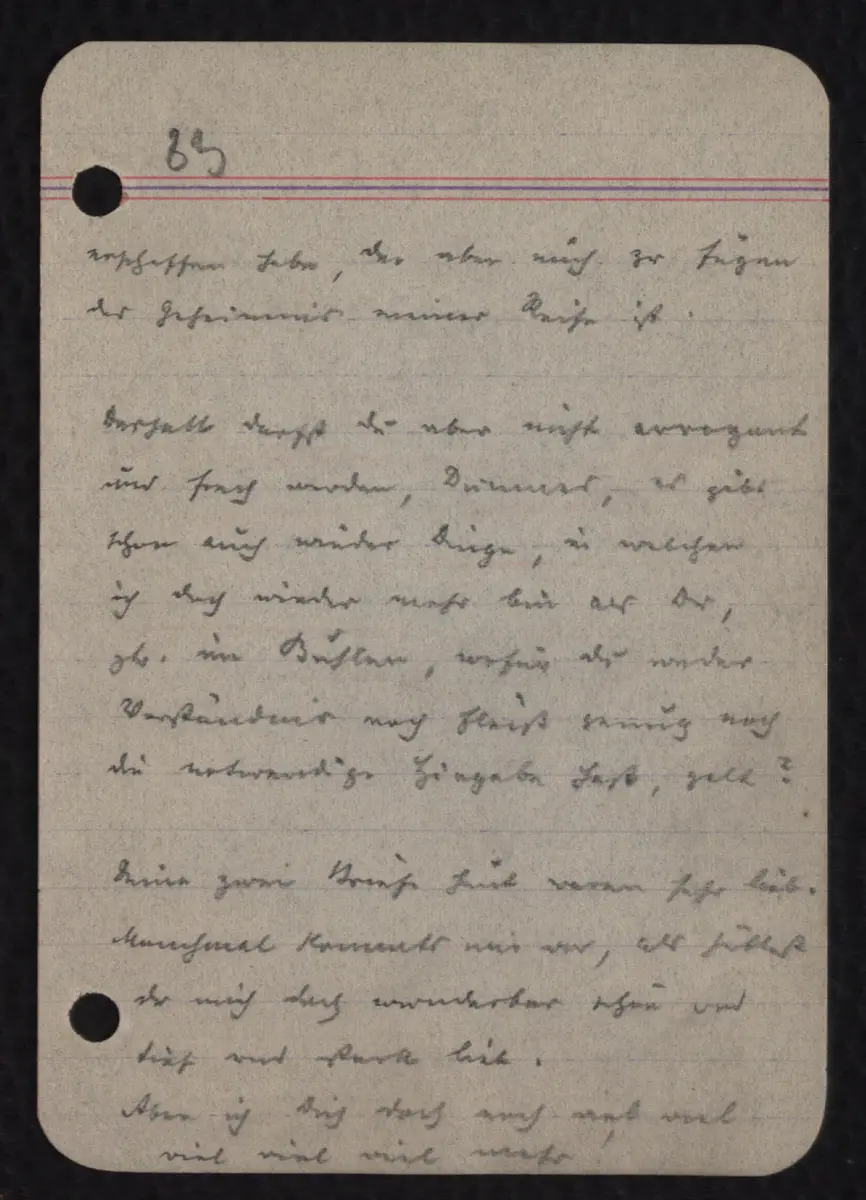 89
erschaffen habe, der aber auch zu sagen
das Geheimnis meiner Reise ist.
Deshalb darfst du aber nicht arrogant
und frech werden, Dummes, es gibt
schon auch wieder Dinge, in welchen
ich doch wieder mehr bin als Du,
zb. im Buhlen, wofür du weder
Verständnis noch Fleiß genug noch
die notwendige Hingabe hast, gelt?
Deine zwei Briefe heut waren sehr lieb.
Manchmal kommts mir vor, als hättest
du mich doch wunderbar schön und
tief und stark lieb.
Aber ich Dich doch noch viel viel
viel viel viel mehr